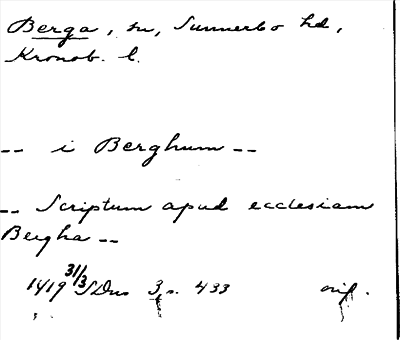 Berga, sn, Sunnerbo hd,
Kronob. l.
-- i Berghum --
-- Scriptum apud ecclesiam
Bergha --
1419 31/3 SDns 3, s. 433 orig.